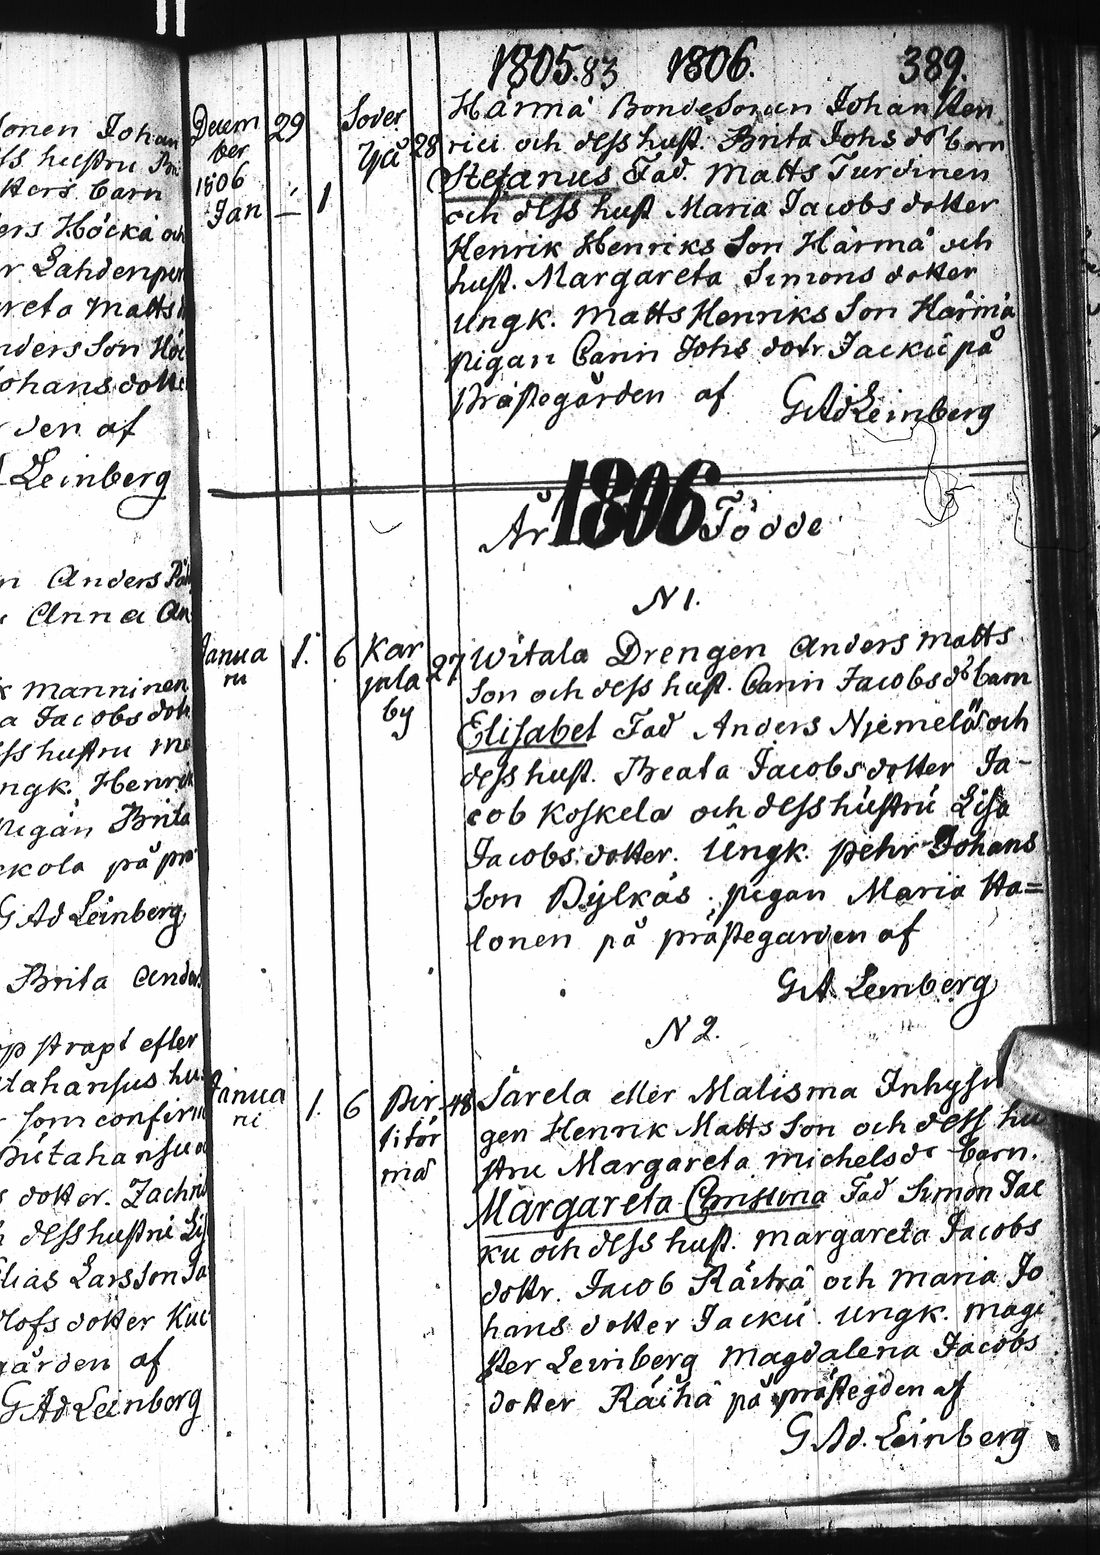 onen Johan
ss hustru Br
kters barn
ers Höckä och
r Lahdenper
reta Matts
nders Son Höc
Johans dotte
den af
Leinberg
n Anders
Anna An
Manninen
a Jacobs dott
ss hustru M
ngk. Henrik
Pigan Brita
ckola på prä
G Ad Leinberg
Brita Anders
opstrapt efter
som confirm
s dotter. Zachri
dess hustru Lis
lias Larsson Ja
Olofs dotter
gården af
G Ad Leinberg
1805. 83 1806. 389.
Decem
ber
1806
Jan
29
1
28
Härmä Bondesonen Johan Hen
rici och dess hust. Brita Johs dr barn
Stefanus Fad. Matts Turdinen
och dess hust Maria Jacobs dotter
Henrik Henriks Son Härmä och
hust. Margareta Simons dotter
Ungk. Matts Henriks Son Härmä
pigan Carin Johs dotr Jacku på
prästegården af G Ad Leinberg
År 1806 Födde
N 1.
Janua
rii
1. 6
Kar
jala
by
27
Witala Drengen Anders Matts
Son och dess hust. Carin Jacobs dr barn
Elisabet Fad Anders Njemelä och
dess hust. Beata Jacobs dotter Ja-
cob Koskela och dess hustru Lisa
Jacobs dotter. Ungk. Pehr Johans
Son Pylkäs. pigan Maria Ha=
lonen på prästegården af
G A Leinberg
N 2.
Janua
ri
1. 6
Pir
titör
mä
48
Sarela eller Malisma Inhysin
gen Henrik Matts Son och dess hu
stru Margareta Michels dr barn.
Margareta Christina Fad Simon Jac
ku och dess hust. Margareta Jacobs
dottr. Jacob Räihä och Maria Jo
hans dotter Jacku. Ungk. Magi
ster Leinberg Magdalena Jacobs
dotter Räihä på prästegden af
G Ad. Leinberg